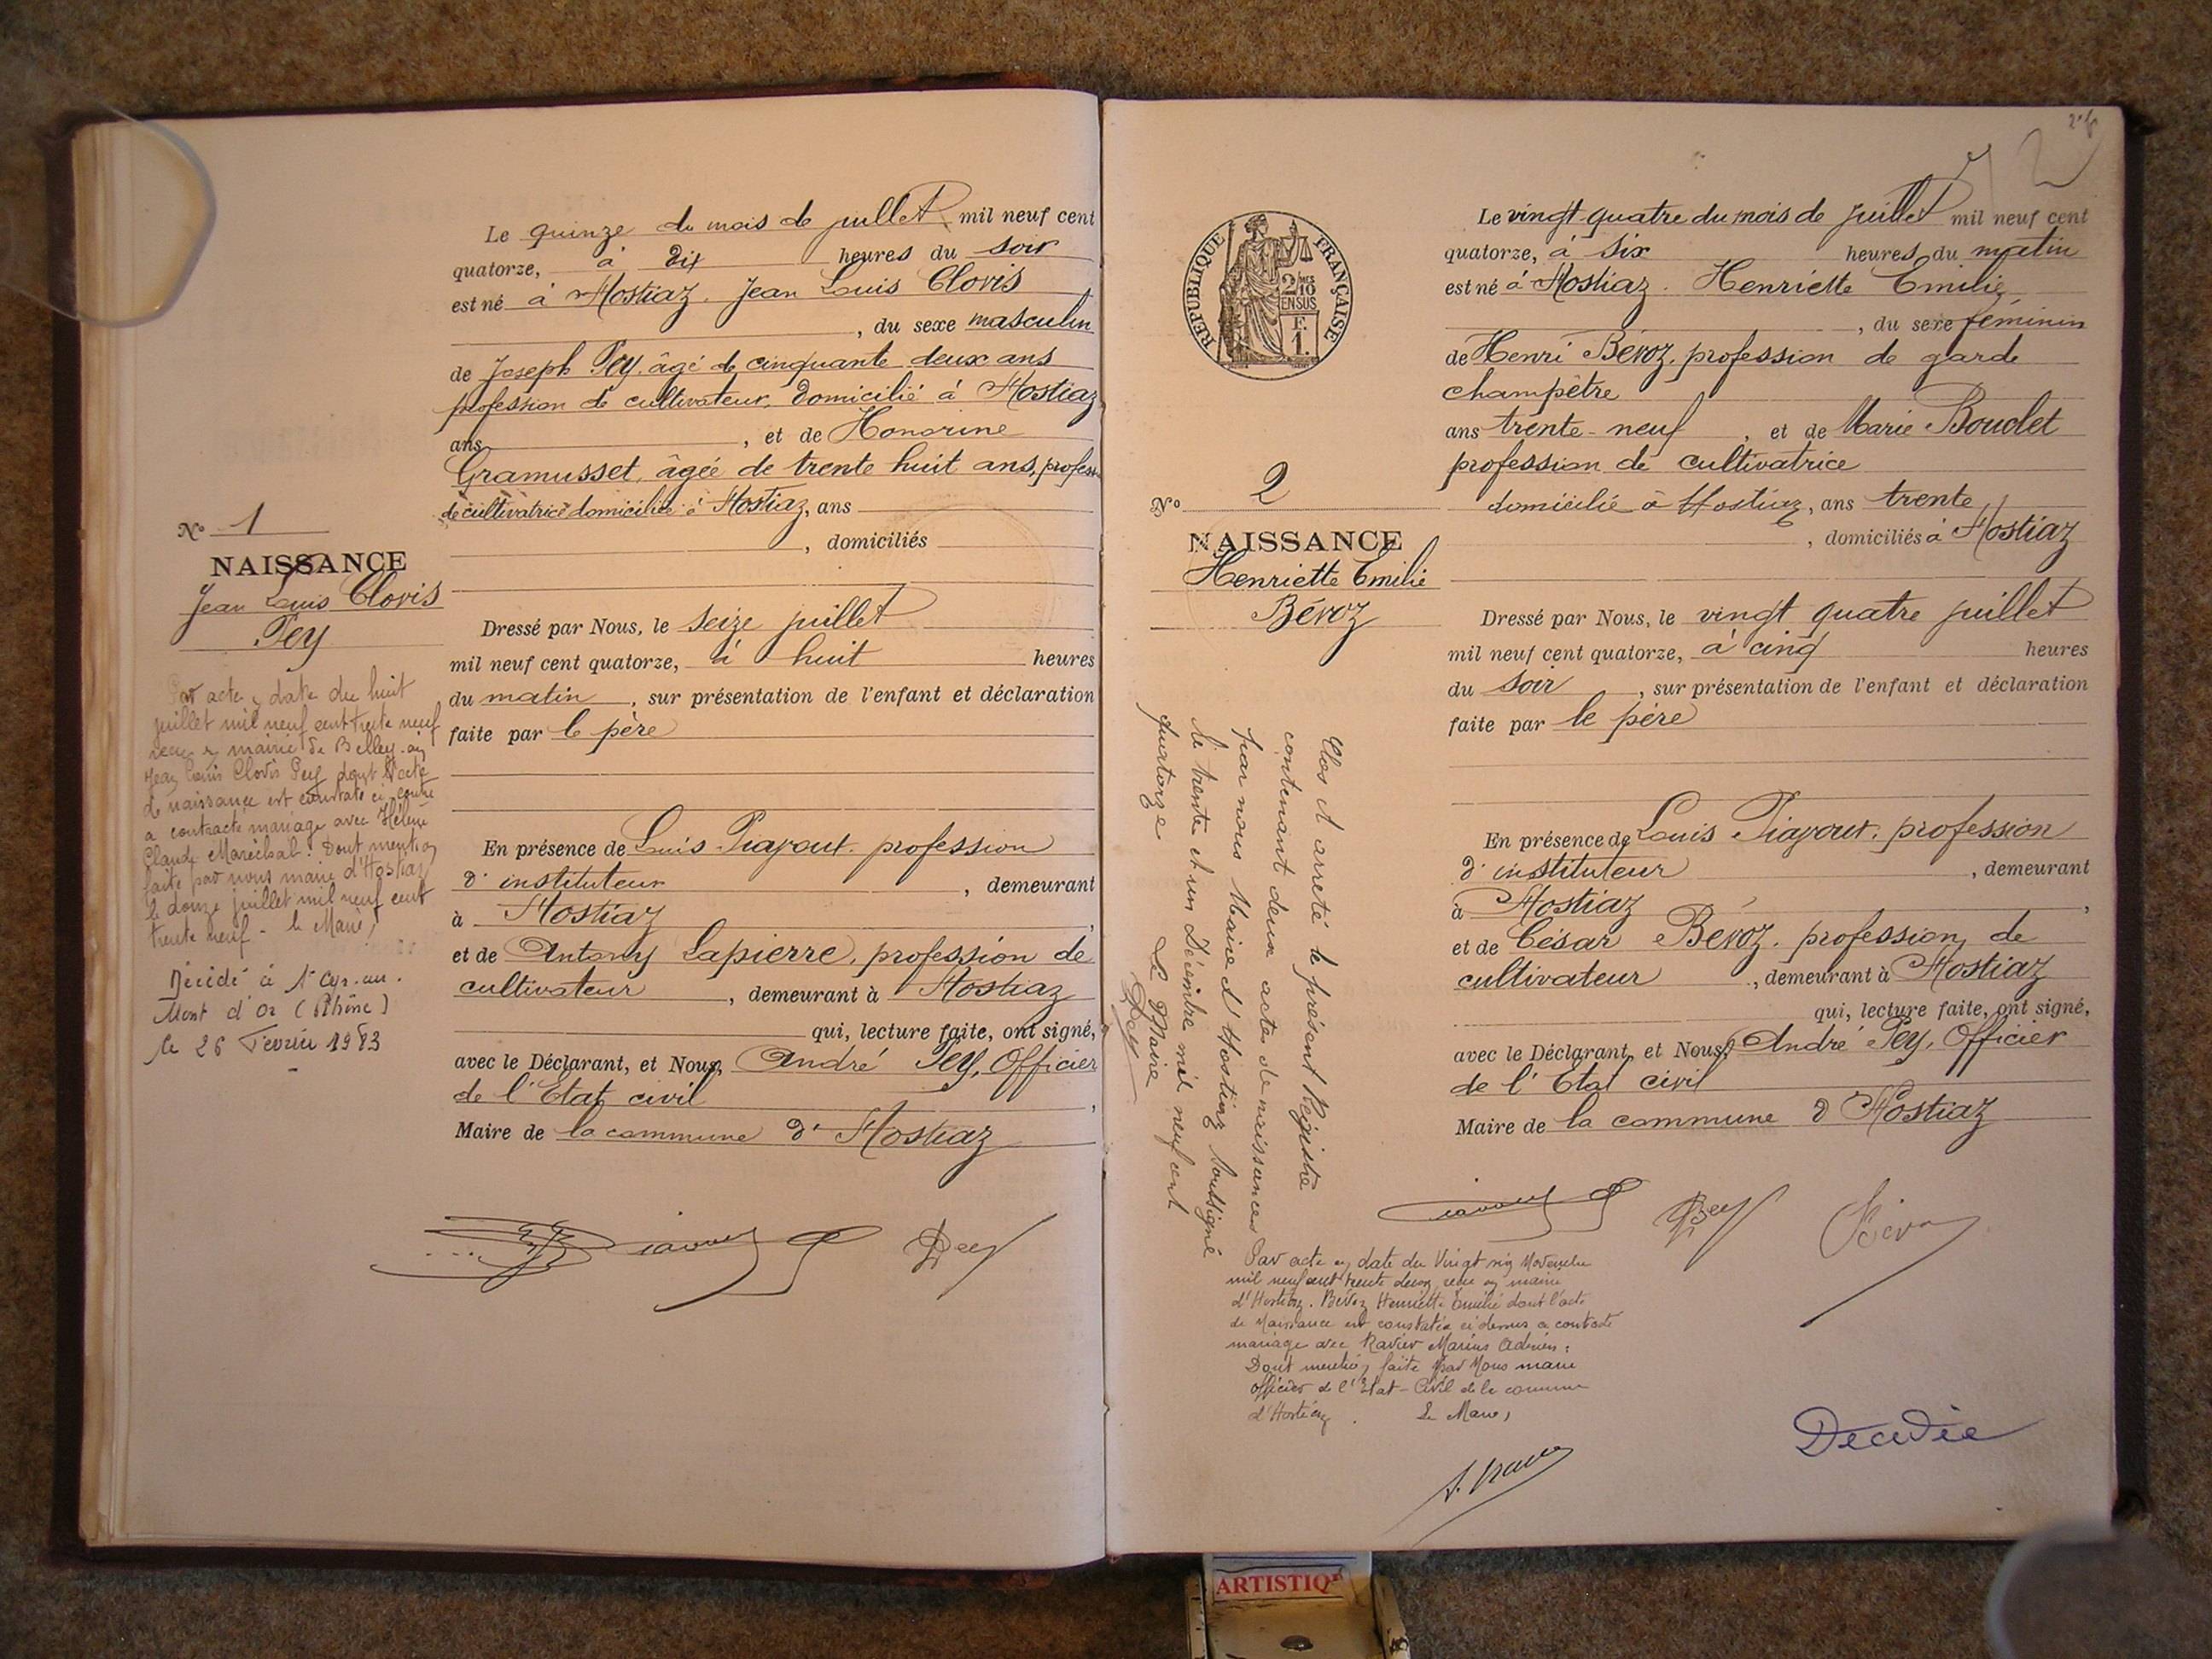 Le quinze du mois de juillet mil neuf cent
quatorze, à dix heures du soir
est né à Hostiaz. Jean Louis Clovis
, du sexe masculin
de Joseph Pey, âgé de cinquante deux ans
profession de cultivateur, domicilié à Hostiaz
ans , et de Honorine
Gramusset, âgée de trente huit ans, profess
de cultivatrice domiciliée à Hostiaz, ans
, domiciliés
N° 1
NAISSANCE
Jean Louis Clovis
Pey
Dressé par Nous, le seize juillet
mil neuf cent quatorze, à huit heures
du matin , sur présentation de l'enfant et déclaration
faite par le père
En présence de Louis Piavoux. profession
d'instituteur , demeurant
à Hostiaz ,
et de Antony Lapierre, profession de
cultivateur , demeurant à Hostiaz
qui, lecture faite, ont signé,
avec le Déclarant, et Nous, André Pey, Officier
de l'Etat civil ,
Maire de la commune d'Hostiaz
Pey
Par acte en date du huit
juillet mil neuf cent trente neuf
reçu en mairie de Belley. ain
Jean Louis Clovis Pey dont l'acte
de naissance est constaté ci contre
a contracté mariage avec Hélène
Claude Maréchal. Dont mention
faite par nous maire d'Hostiaz
le douze juillet mil neuf cent
trente neuf - le Maire,
Décédé à St Cyr. au.
Mont d'Or (Rhône)
le 26 Février 1983
2
REPUBLIQUE FRANÇAISE
2/10 EN SUS
F.
1.
N° 2
NAISSANCE
Henriette Emilie
Béroz
Le vingt quatre du mois de juillet mil neuf cent
quatorze, à six heures du matin
est né à Hostiaz. Henriette Emilie
, du sexe féminin
de Henri Béroz, profession de garde
champêtre
ans trente-neuf , et de Marie Boudet
profession de cultivatrice
domicilié à Hostiaz, ans trente
, domiciliés à Hostiaz
Dressé par Nous, le vingt quatre juillet
mil neuf cent quatorze, à cinq heures
du soir , sur présentation de l'enfant et déclaration
faite par le père
En présence de Louis Piavoux. profession
d'instituteur , demeurant
à Hostiaz ,
et de César Béroz. profession de
cultivateur , demeurant à Hostiaz
qui, lecture faite, ont signé,
avec le Déclarant, et Nous, André Pey, Officier
de l'Etat civil
Maire de la commune d'Hostiaz
Clos et arrêté le présent Registre
contenant deux actes de naissances
par nous Maire d'Hostiaz soussigné
le trente et un Décembre mil neuf cent
quatorze Le Maire
Pey
Pey
Par acte en date du Vingt six Novembre
mil neuf cent trente deux, reçu en mairie
d'Hostiaz. Béroz Henriette Emilie dont l'acte
de Naissance est constatée ci dessus a contracté
mariage avec Ravier Marius Adrien:
Dont mention faite Par Nous maire
officier de l'Etat-Civil de la commune
d'Hostiaz. Le Maire,
Décédée
ARTISTIQ